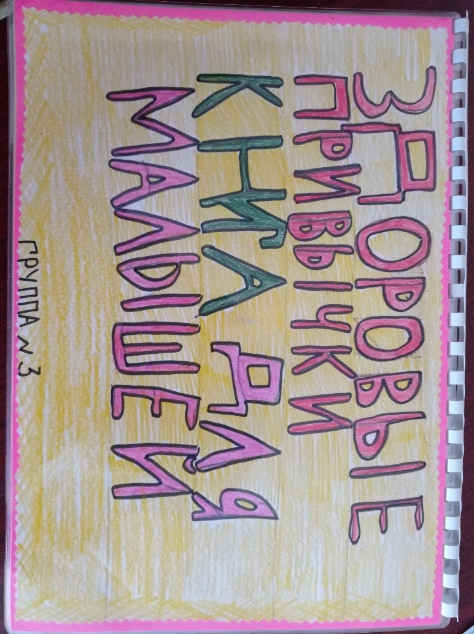 ЗДОРОВЫЕ
ПРИВЫЧКИ
КНИГА ДЛЯ
МАЛЫШЕЙ
ГРУППА N 3